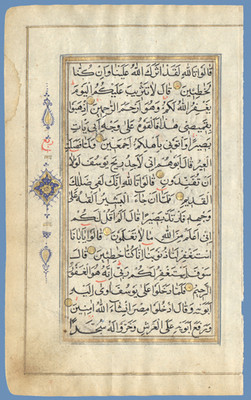 قَالُوا تَاللّٰهِ لَقَدْ اٰثَرَكَ اللّٰهُ عَلَيْنَا وَاِنْ كُنَّا
لَخٰطِئِينَ قَالَ لَا تَثْرِيبَ عَلَيْكُمُ الْيَوْمَ
يَغْفِرُ اللّٰهُ لَكُمْ وَهُوَ اَرْحَمُ الرَّاحِمِينَ اِذْهَبُوا
بِقَمِيصِي هٰذَا فَاَلْقُوهُ عَلٰى وَجْهِ اَبِي يَاْتِ
بَصِيرًا وَاْتُونِي بِاَهْلِكُمْ اَجْمَعِينَ وَلَمَّا فَصَلَتِ
الْعِيرُ قَالَ اَبُوهُمْ اِنِّي لَاَجِدُ رِيحَ يُوسُفَ لَوْلَا
اَنْ تُفَنِّدُونِ قَالُوا تَاللّٰهِ اِنَّكَ لَفِي ضَلَالِكَ
الْقَدِيمِ فَلَمَّا اَنْ جَاءَ الْبَشِيرُ اَلْقٰهُ عَلٰى
وَجْهِهِ فَارْتَدَّ بَصِيرًا قَالَ اَلَمْ اَقُلْ لَكُمْ
اِنِّي اَعْلَمُ مِنَ اللّٰهِ مَا لَا تَعْلَمُونَ قَالُوا يَا اَبَانَا
اسْتَغْفِرْ لَنَا ذُنُوبَنَا اِنَّا كُنَّا خَاطِئِينَ قَالَ
سَوْفَ اَسْتَغْفِرُ لَكُمْ رَبِّي اِنَّهُ هُوَ الْغَفُورُ
الرَّحِيمُ فَلَمَّا دَخَلُوا عَلٰى يُوسُفَ اٰوٰى اِلَيْهِ
اَبَوَيْهِ وَقَالَ ادْخُلُوا مِصْرَ اِنْ شَاءَ اللّٰهُ اٰمِنِينَ
وَرَفَعَ اَبَوَيْهِ عَلَى الْعَرْشِ وَخَرُّوا لَهُ سُجَّدًا